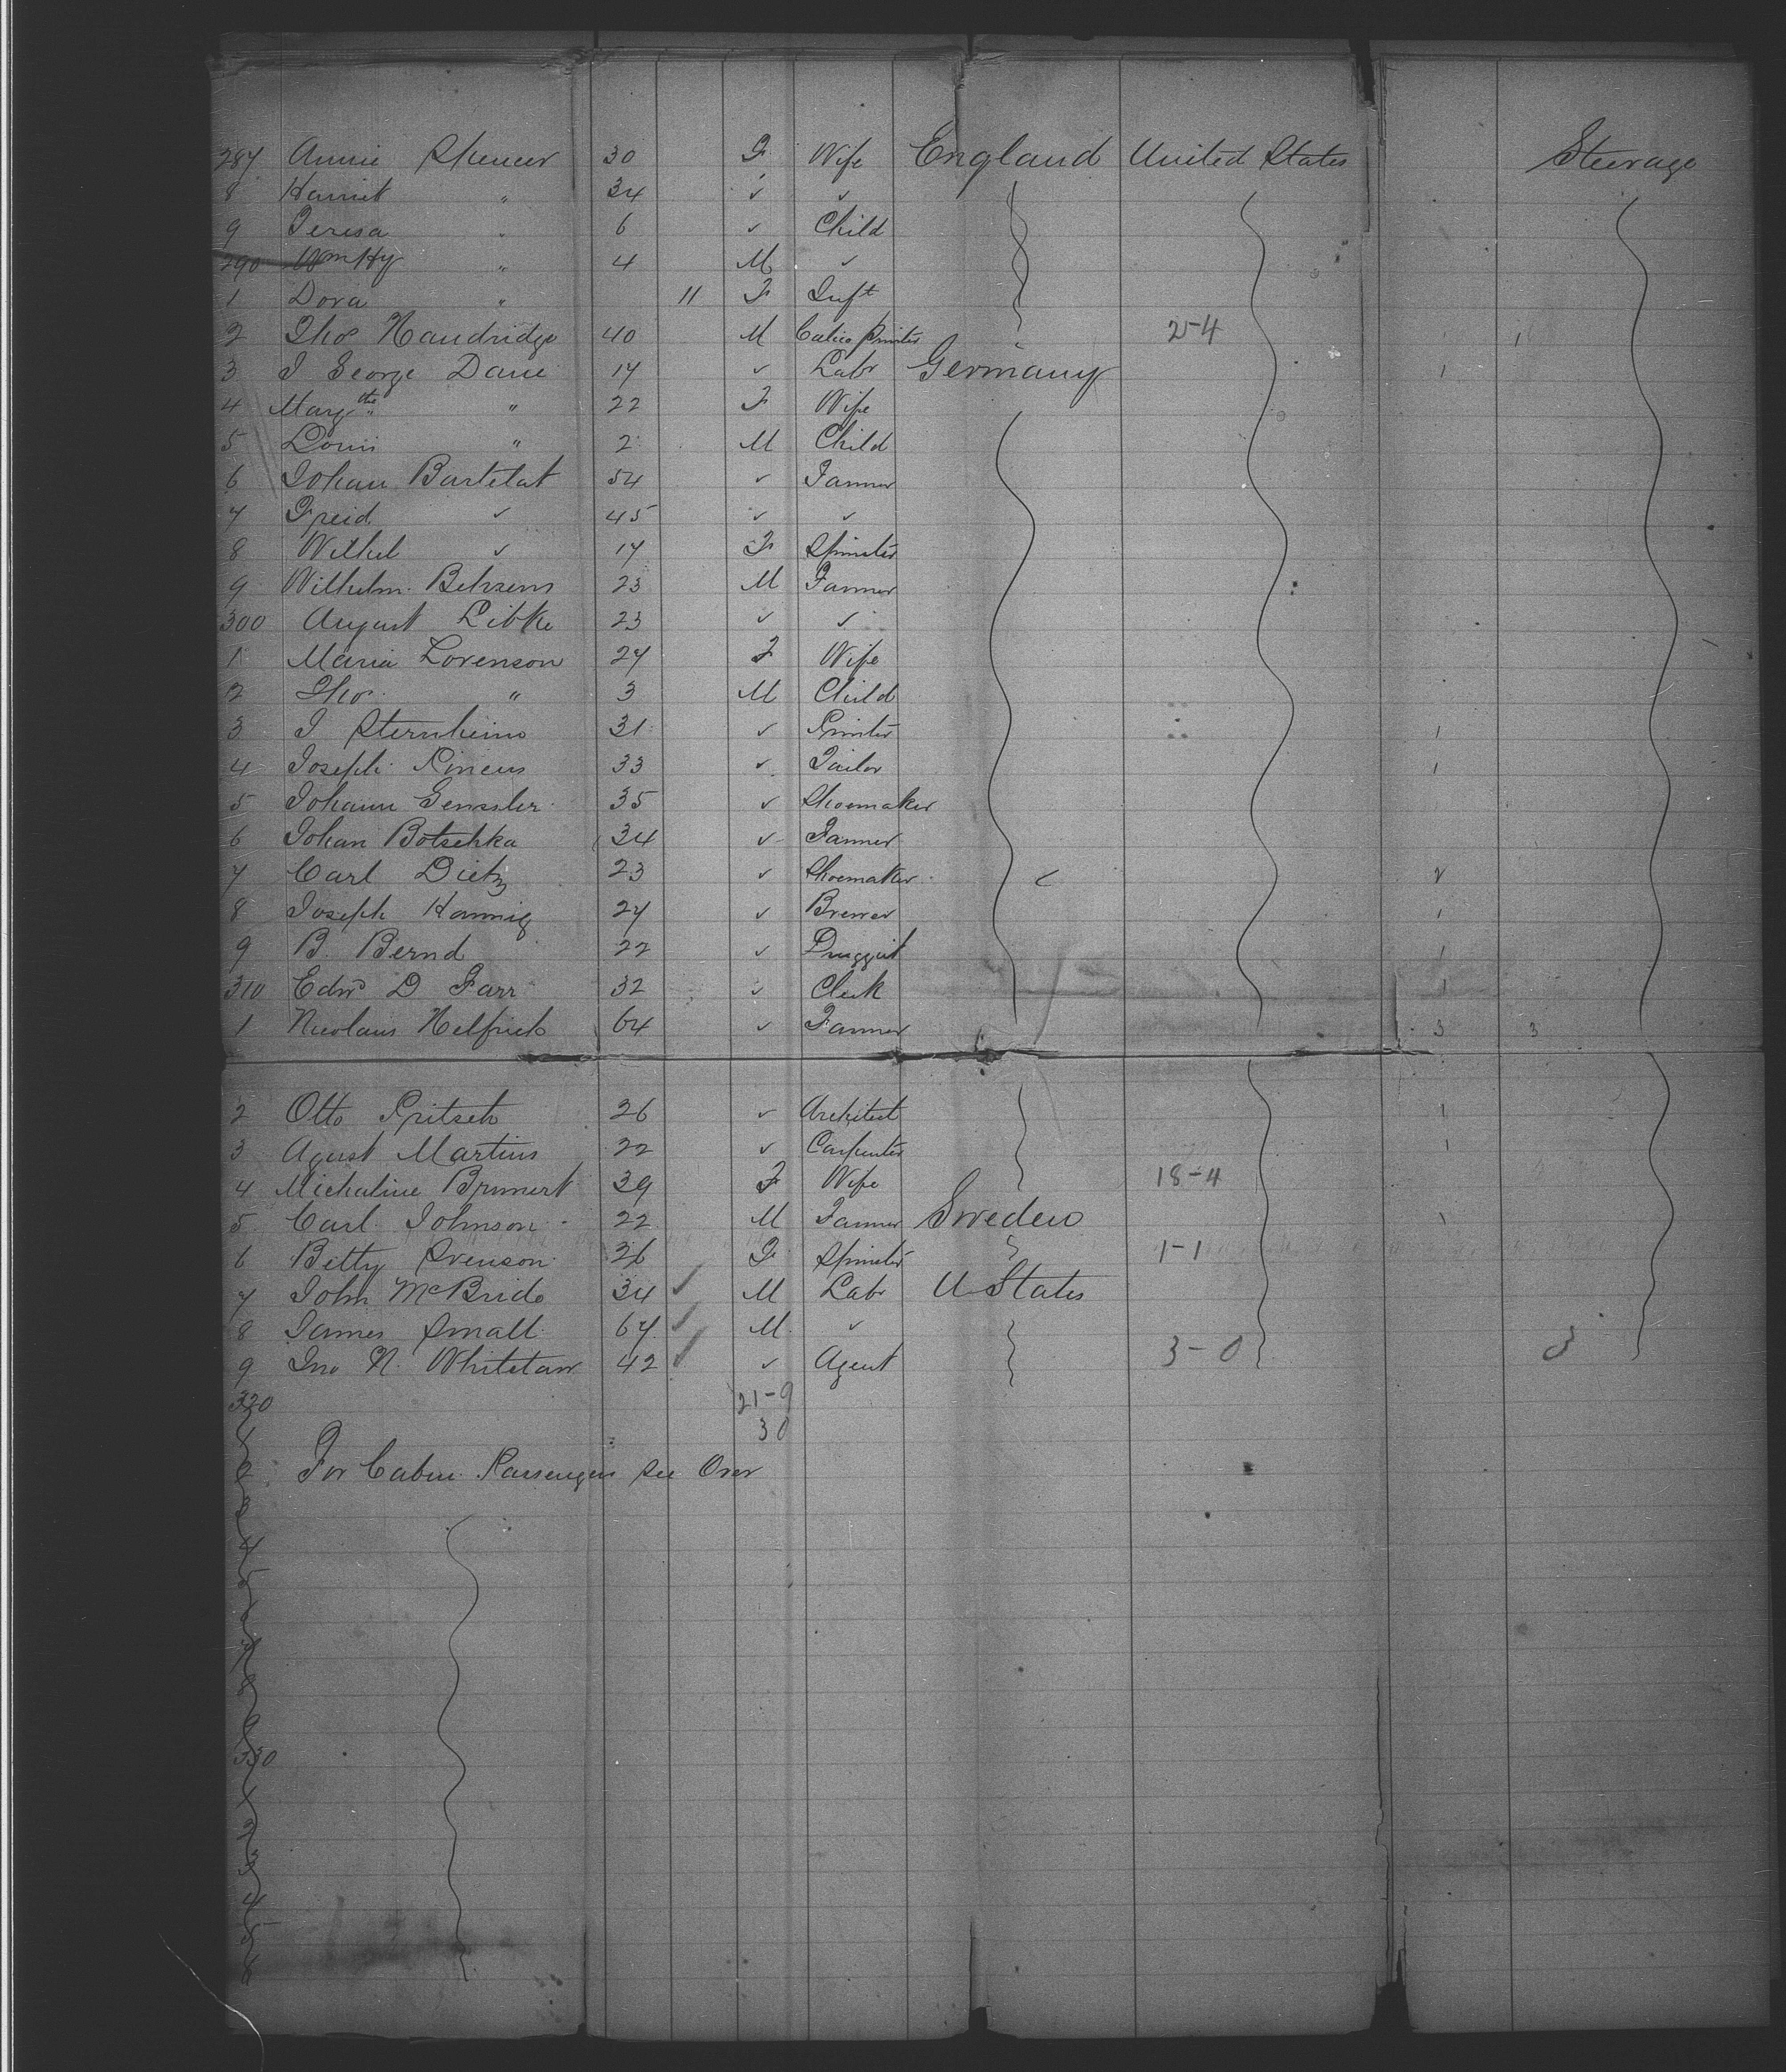 287 Annie Spencer 30 F Wife England United States Steerage
8 Harriet " 34 ✓ ✓
9 Teresa " 6 ✓ Child
290 Wm Hy " 4 M ✓
1 Dora " 11 F Inft
2 Thos Handridge 40 M Calico Printer 25-4 1
3 J George Dane 17 ✓ Labr Germany 1
4 Margthe " 22 F Wife
5 Louis " 2 M Child
6 Johan Bartelat 54 ✓ Farmer
7 Freid ✓ 45 ✓ ✓
8 Wilhel ✓ 17 F Spinster
9 Wilhelm Behrens 23 M Farmer
300 August Libke 23 ✓ ✓
1 Maria Lorenson 27 F Wife
2 Thos " 3 M Child
3 J Sternheim 31 ✓ Printer 1
4 Joseph Pincus 33 ✓ Tailor 1
5 Johann Genssler 35 ✓ Shoemaker
6 Johan Botschka 34 ✓ Farmer
7 Carl Dietz 23 ✓ Shoemaker ✓
8 Joseph Hannig 27 ✓ Brewer 1
9 B. Bernd 22 ✓ Druggist 1
310 Edwd D Farr 32 ✓ Clerk 1
1 Nicolaus Helfrich 64 ✓ Farmer 3 3
2 Otto Pritsch 26 ✓ Architect 1
3 Agust Martins 22 ✓ Carpenter 1
4 Michaline Brunert 39 F Wife 18-4
5 Carl Johnson 22 M Farmer Sweden 1
6 Betty Svenson 26 F Spinster 1-1
7 John McBride 34 ✓ M Labr U States
8 James Small 67 ✓ M ✓
9 Jno N. Whitetaw 42 ✓ ✓ Agent 3-0 3
320 21-9
1 30
2 For Cabin Passengers see Over
3
4
5
6
7
8
9
330
1
2
3
4
5
6